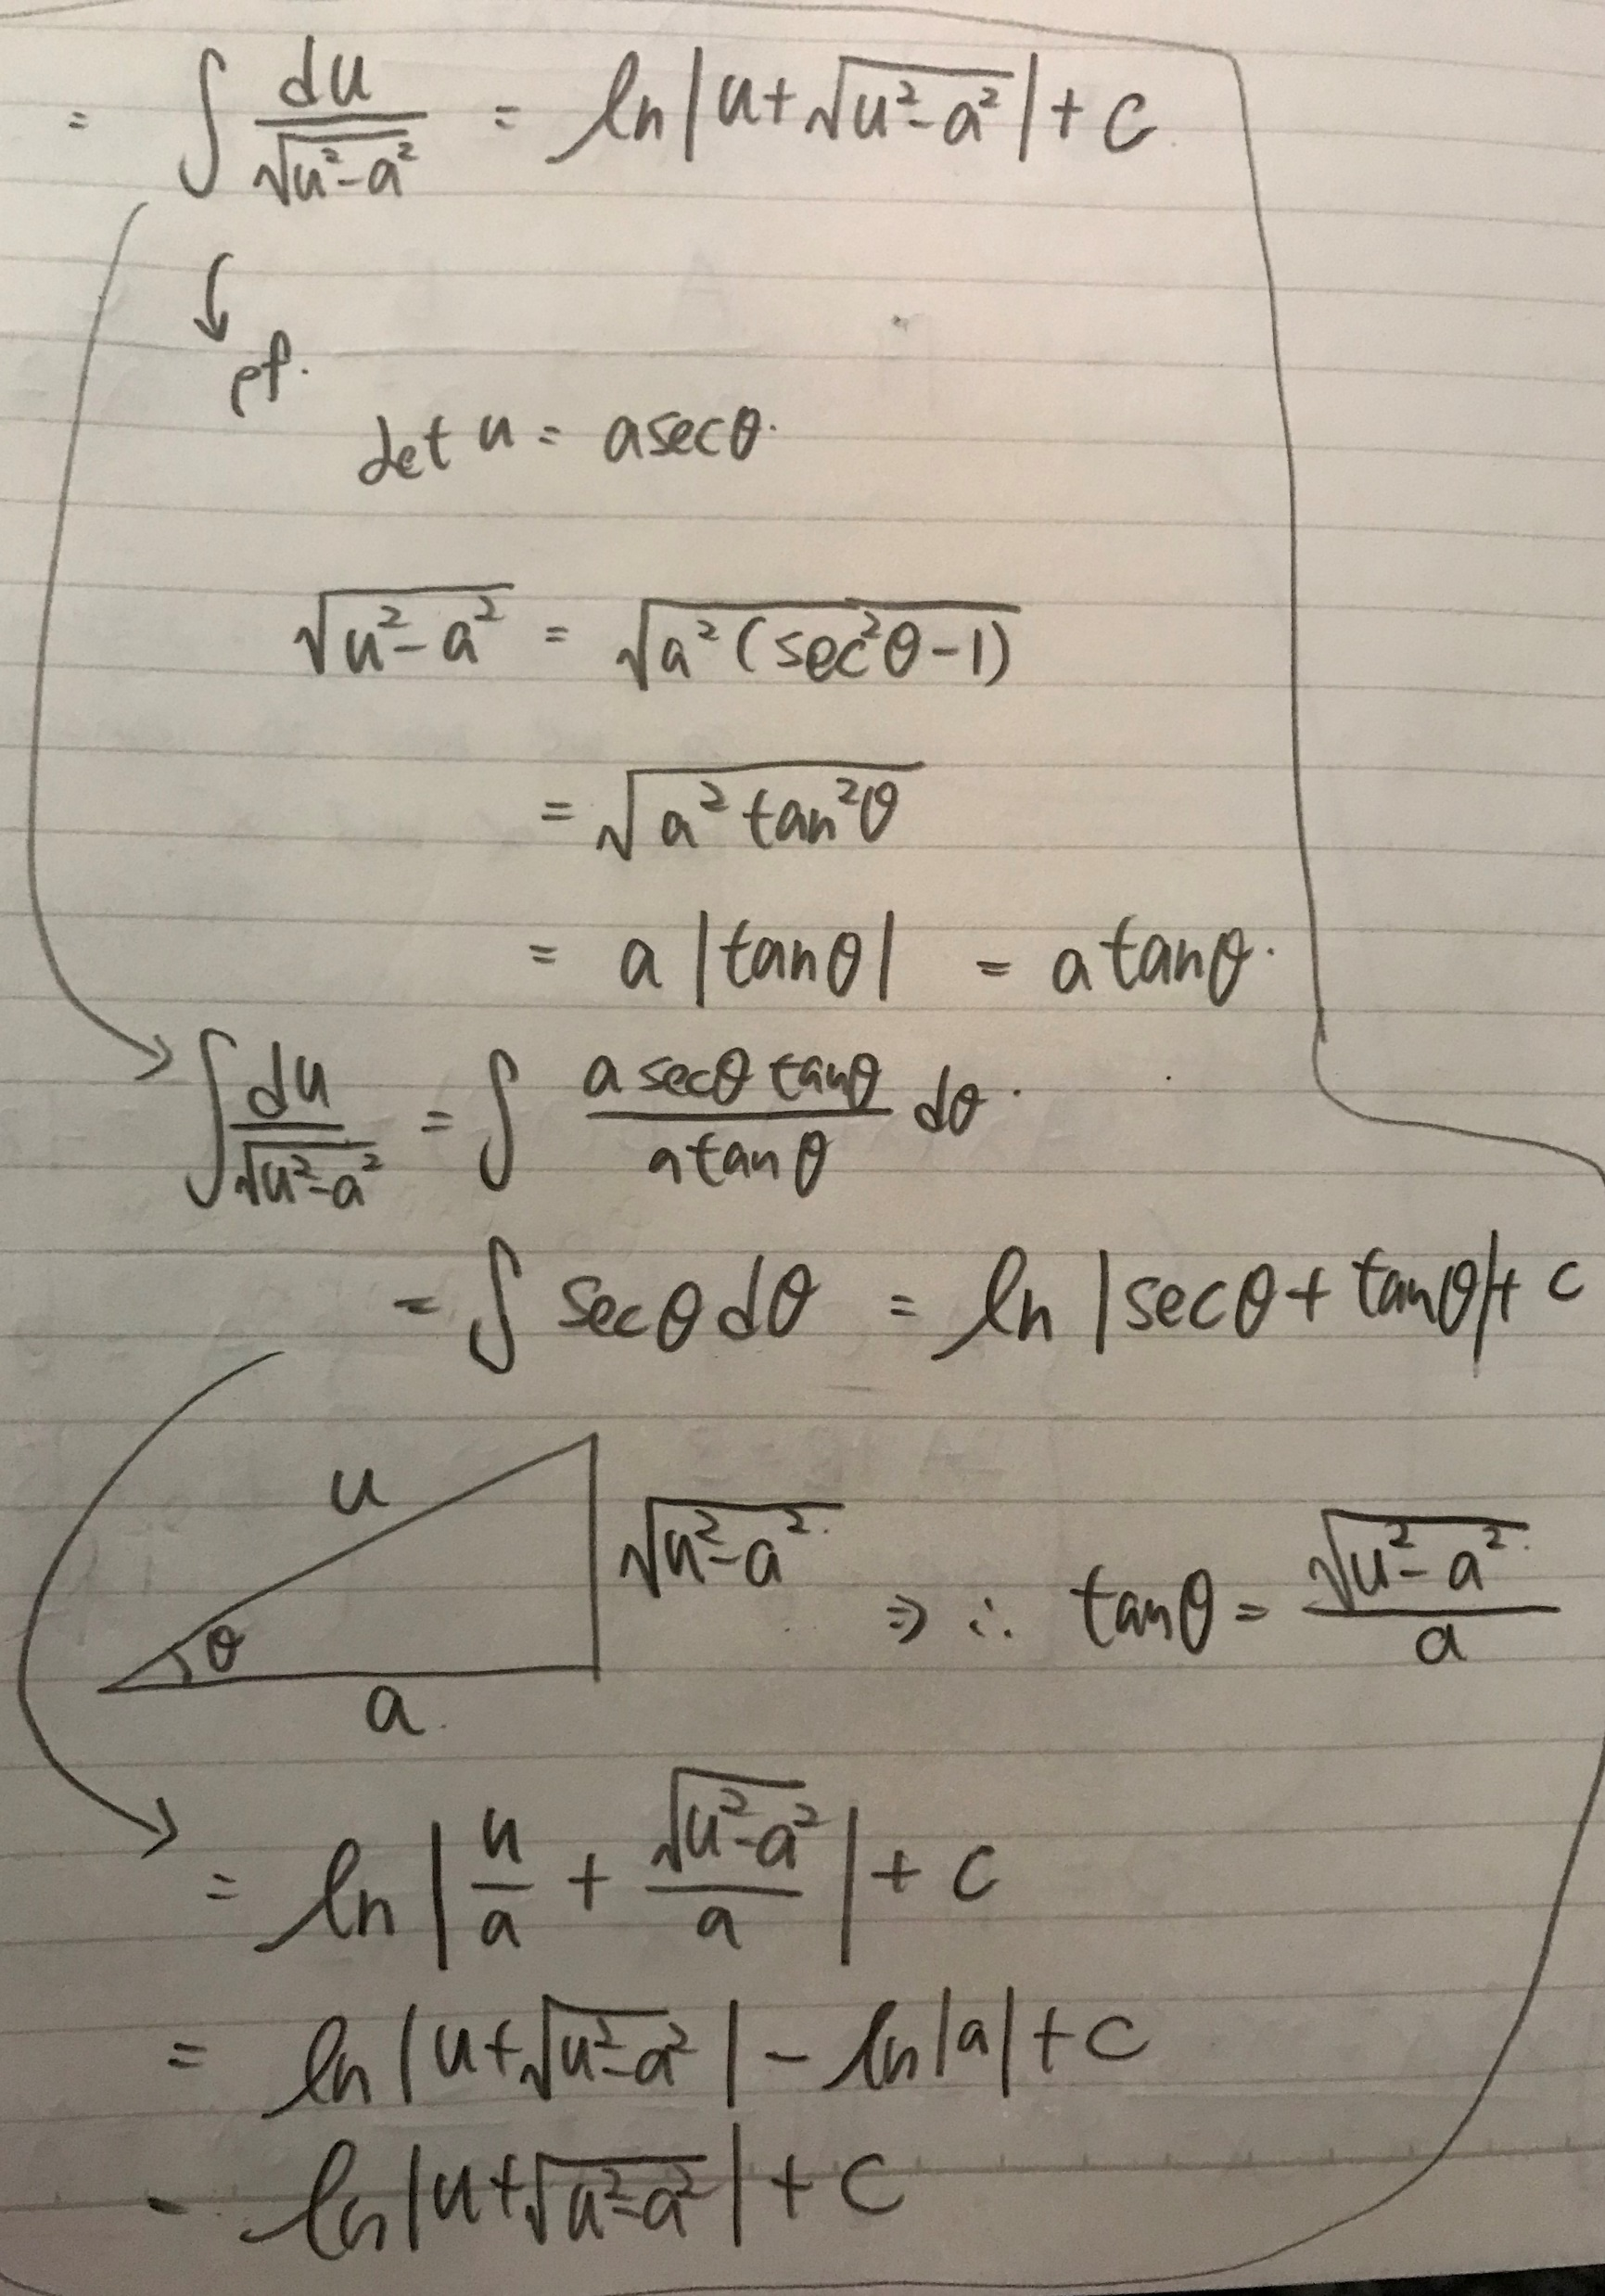 = ∫ du/√(u²-a²) = ln|u+√(u²-a²)| + c
pf.
let u = a secθ.
√(u²-a²) = √(a²(sec²θ-1))
= √(a² tan²θ)
= a |tanθ| = a tanθ.
∫ du/√(u²-a²) = ∫ (a secθ tanθ)/(a tanθ) dθ.
= ∫ secθ dθ = ln |secθ + tanθ| + c
u
√(u²-a²) ⇒ ∴ tanθ = √(u²-a²)/a
θ
a.
= ln |u/a + √(u²-a²)/a| + c
= ln |u+√(u²-a²)| - ln|a| + c
= ln|u+√(u²-a²)| + c